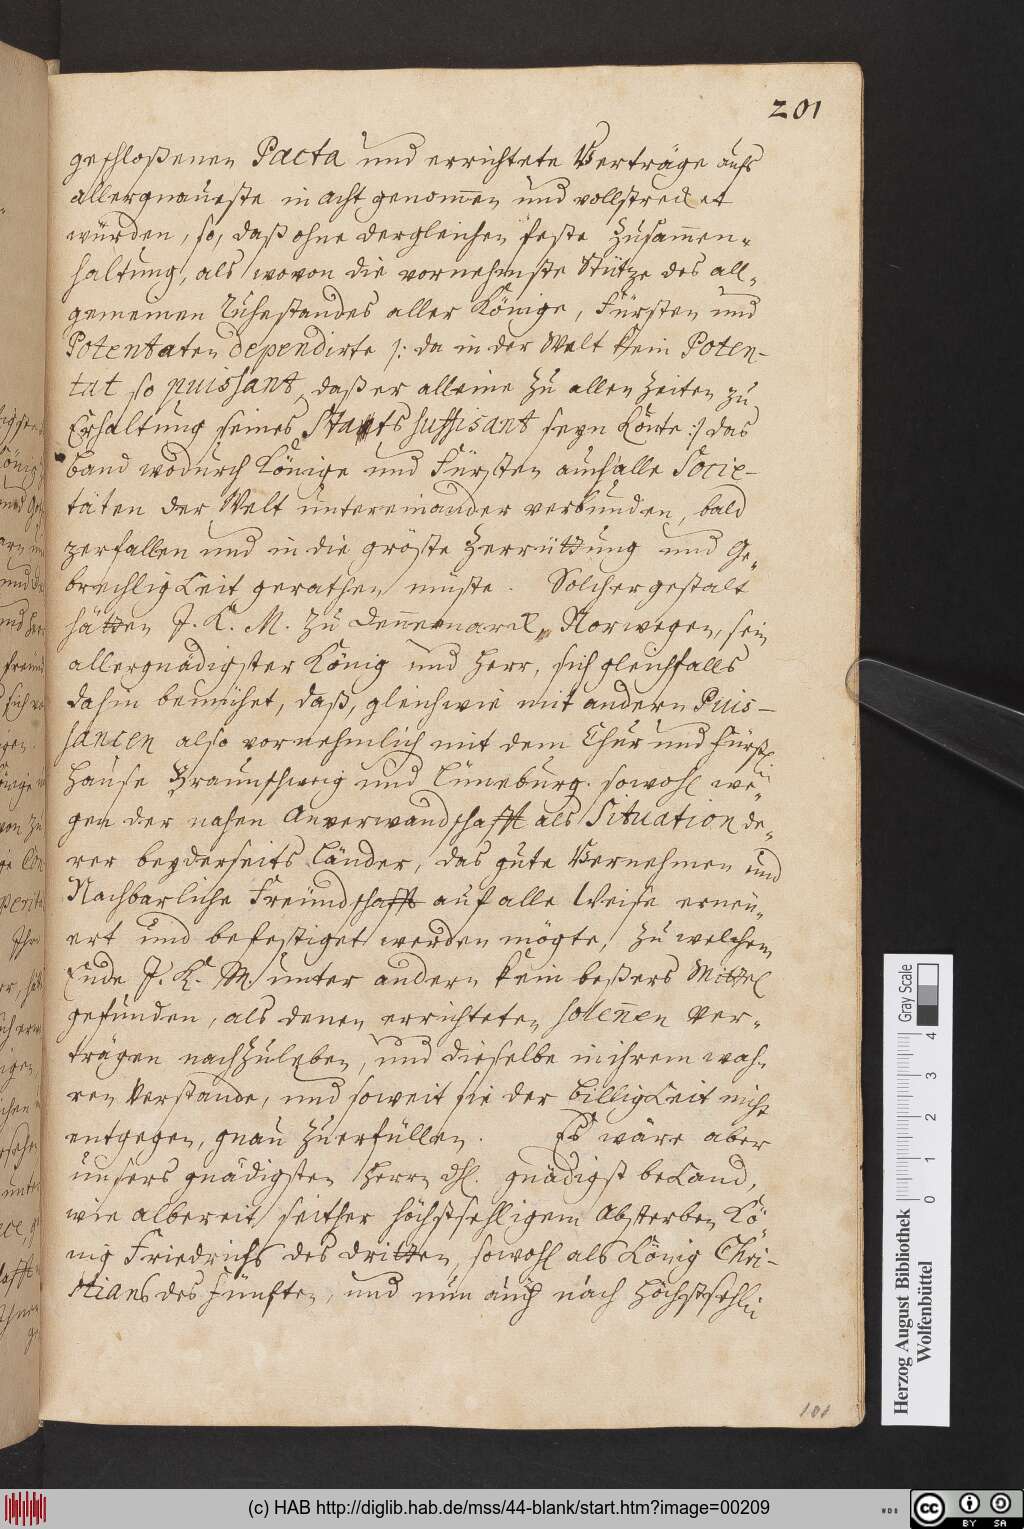 201
geschloßenen Pacta und errichtete Verträge aufs
allergnaueste in acht genom̅en und vollstrecket
würden, so, daß ohne dergleichen feste Zusam̅en=
haltung, als wovon die vornehmste Stütze des all=
gemeinen Ruhestandes aller Könige, Fürsten und
Potentaten dependirte /: da in der Welt kein Poten-
tat so puissant, daß er alleine zu allen Zeiten zu
Erhaltung seines Staats suffisant seyn könte :/ das
band wodurch Könige und Fürsten auch alle Socie-
täten der Welt untereinander verbunden, bald
zerfallen und in die gröste Zerrüttung und Ge=
brechligkeit gerathen müste. Solchergestalt
hätten J. K. M. zu Dennemarck, Norwegen, sein
allergnädigster König und Herr, sich gleichfalls
dahin bemühet, daß, gleichwie mit andern Puis-
sancen also vornehmlich mit dem Chur und Fürstl.
Hause Braunschweig und Lüneburg. sowohl we=
gen der nahen Anverwandschafft als Situation de=
rer beyderseits Länder, das gute Vernehmen und
Nachbarliche Freundschafft auf alle Weise erneu=
ert und befestiget werden mögte, zu welchem
Ende J. K. M. unter andern kein beßers Mittel
gefunden, als denen errichteten solen̅en Ver=
trägen nachzuleben, und dieselbe in ihrem wah=
ren Verstande, und soweit sie der billigkeit nicht
entgegen, gnau zu erfüllen. Es wäre aber
unsers gnädigsten Herrn dhl. gnädigst bekand,
wie albereit seither höchstsehligem Absterben Kö
nig Friedrichs des dritten, sowohl als König Chri-
stians des Fünften, und nun auch nach Höchstsehli
101
Herzog August Bibliothek
Wolfenbüttel
Gray Scale
0 1 2 3 4
(c) HAB http://diglib.hab.de/mss/44-blank/start.htm?image=00209
WDB
cc BY SA